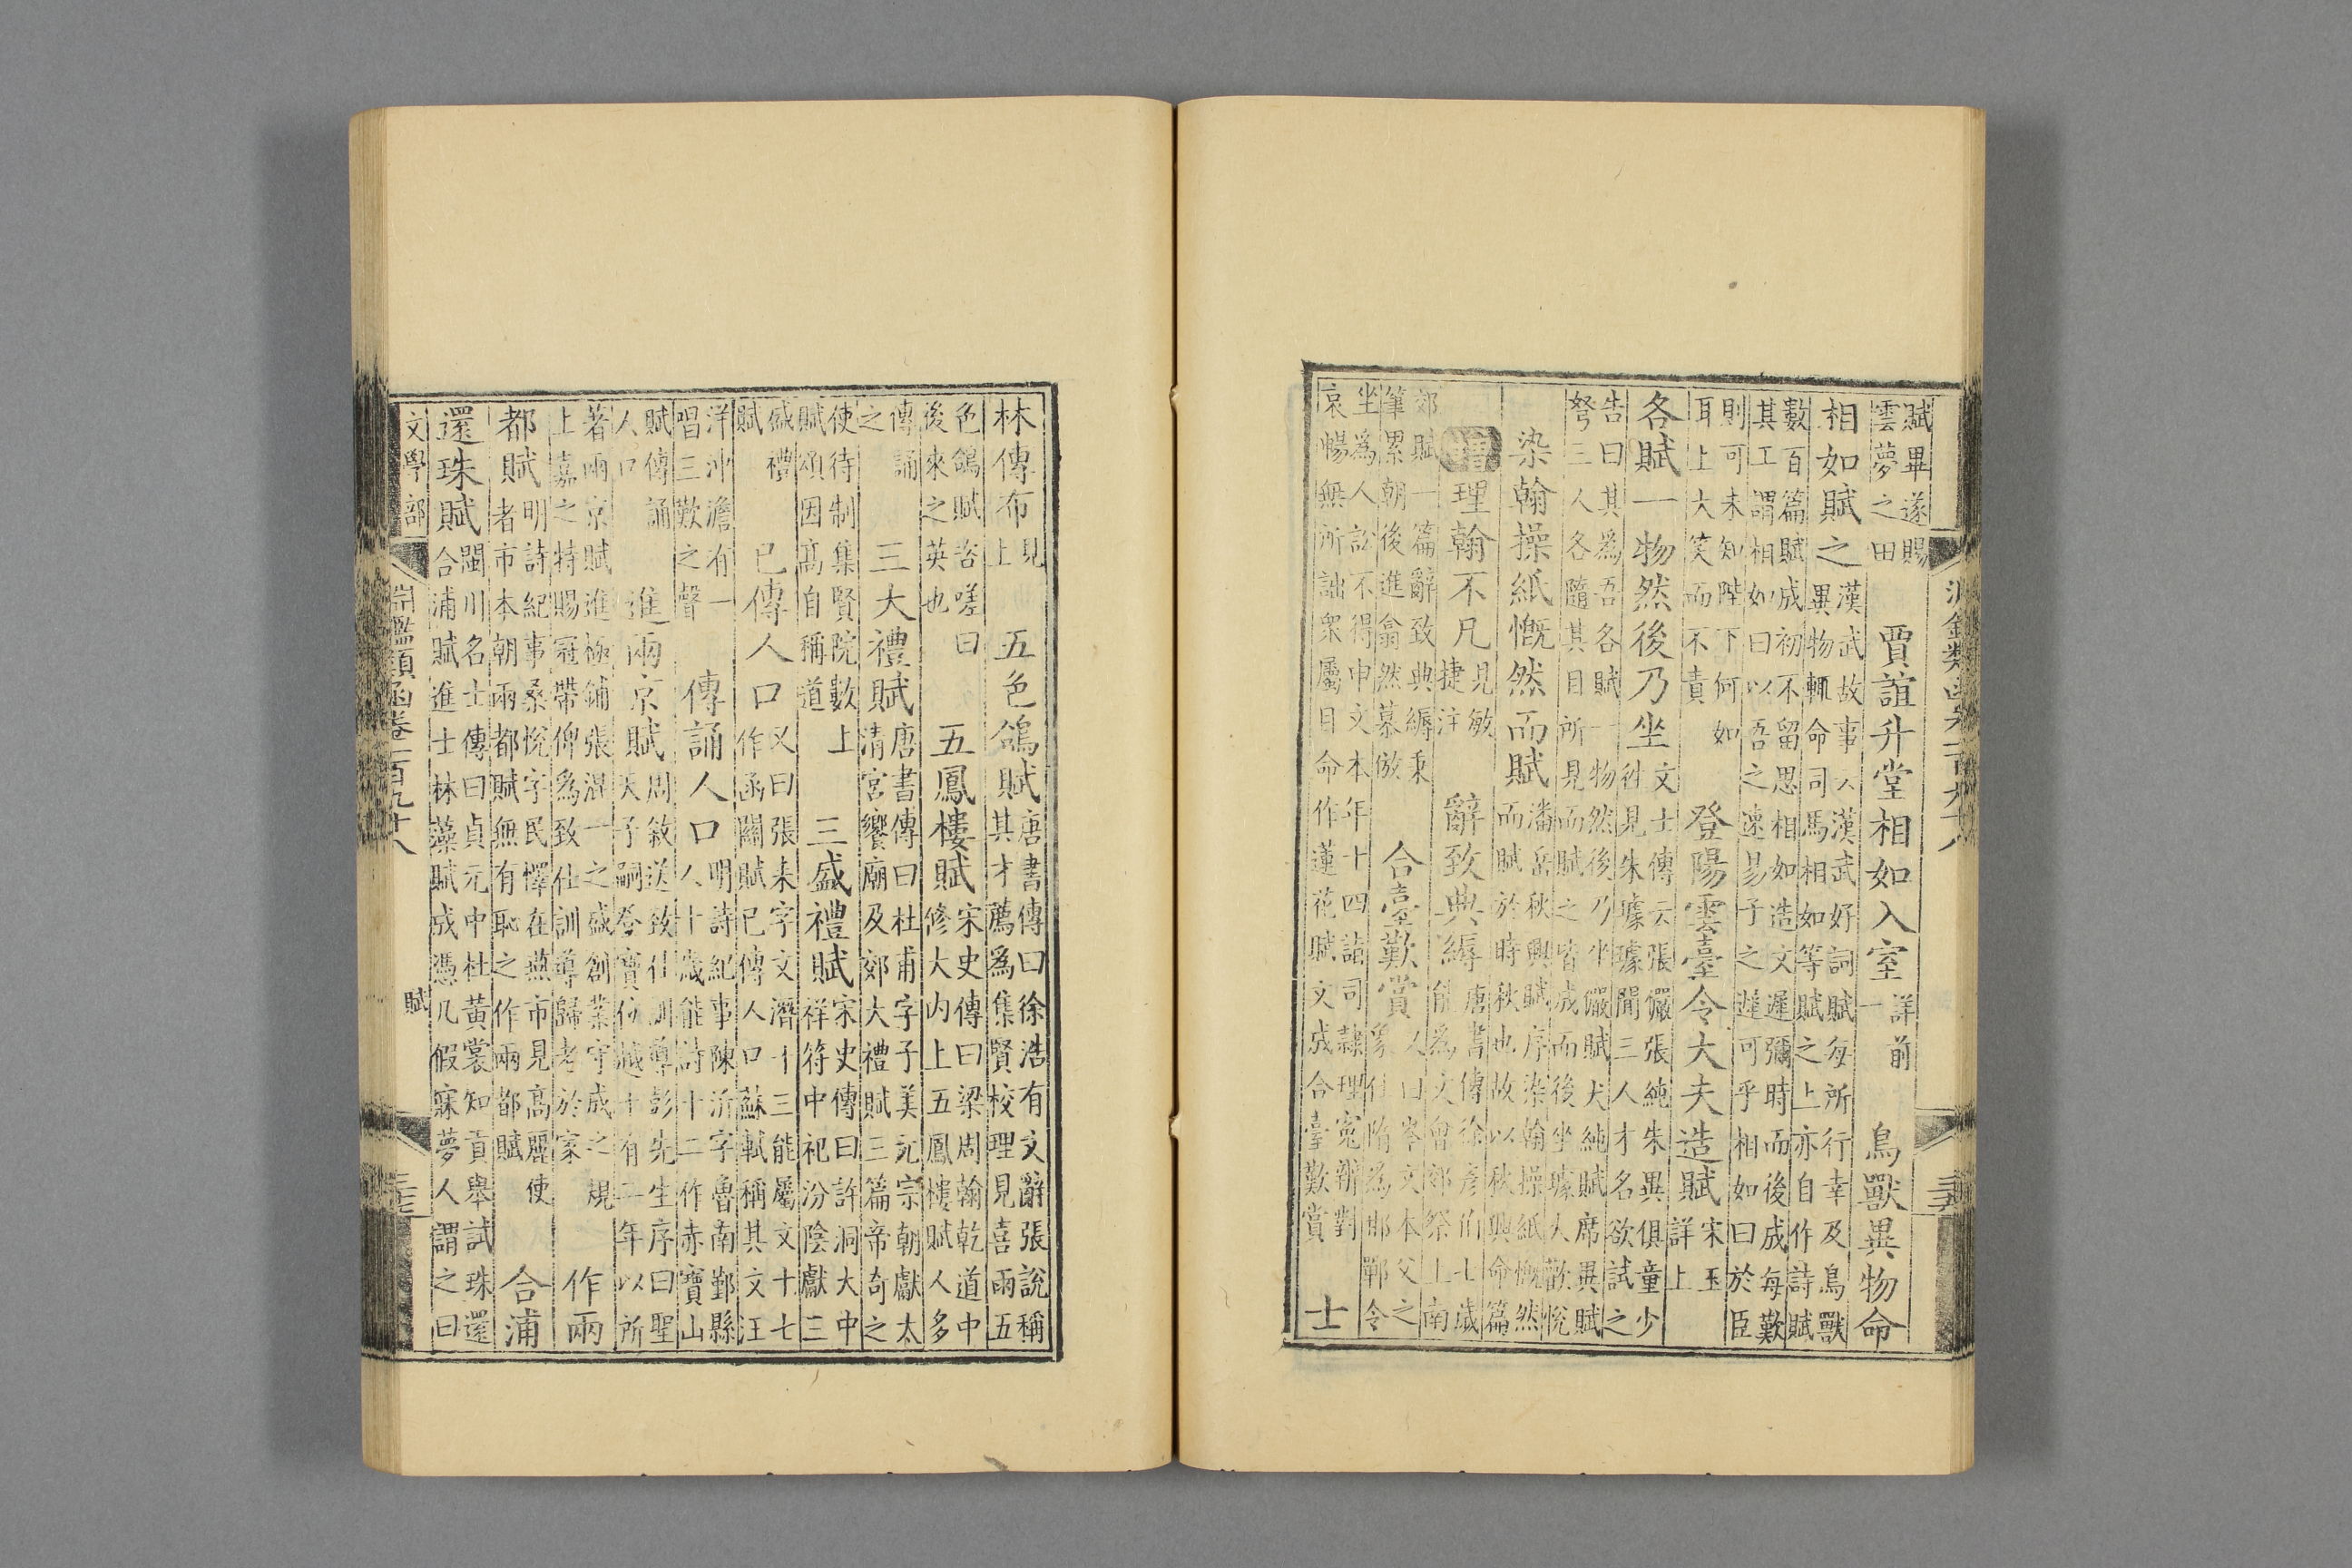 淵鑑類函卷一百九十八
賦畢遂賜
雲夢之田
賈誼升堂相如入室
詳前
一
鳥獸異物命
相如賦之
漢武故事云漢武好詞賦每所行幸及鳥獸
異物輒命司馬相如等賦之上亦自作詩賦
數百篇賦成初不留思相如造文遲彌時而後成每歎
其工謂相如曰以吾之速易子之遲可乎相如曰於臣
則可未知陛下何如
耳上大笑而不責
登陽雲臺令大夫造賦
宋玉
詳上
各賦一物然後乃坐
文士傳云張儼張純朱異俱童少
往見朱據據聞三人才名欲試之
告曰其爲吾各賦一物然後乃坐儼賦犬純賦席異賦
弩三人各隨其目所見而賦之皆成而後坐據大歡悅
染翰操紙慨然而賦
潘岳秋興賦序染翰操紙慨然
而賦於時秋也故以秋興命篇
增
理翰不凡
見敏
捷注
辭致典縟
唐書傳徐彥伯七歲
能爲文曾郊祭上南
郊賦一篇辭致典縟秉
筆累朝後進翕然慕倣
合臺歎賞
又曰岑文本父之
象仕隋爲邯鄲令
坐爲人訟不得申文本年十四詣司隷理冤辨對
哀暢無所詘衆屬目命作蓮花賦文成合臺歎賞
士
林傳布
見
上
五色鴿賦
唐書傳曰徐浩有文辭張說稱
其才薦爲集賢校理見喜雨五
色鴿賦咨嗟曰
後來之英也
五鳳樓賦
宋史傳曰梁周翰乾道中
修大内上五鳳樓賦人多
傳誦
之
三大禮賦
唐書傳曰杜甫字子美元宗朝獻太
清宮饗廟及郊大禮賦三篇帝奇之
使待制集賢院數上
賦頌因高自稱道
三盛禮賦
宋史傳曰許洞大中
祥符中祀汾陰獻三
盛禮
賦
已傳人口
又曰張耒字文潛十三能屬文十七
作函關賦已傳人口蘇軾稱其文汪
洋沖澹有一
唱三歎之聲
傳誦人口
明詩紀事陳沂字魯南鄞縣
人十歲能詩十二作赤寶山
賦傳誦
人口
進兩京賦
周敘送致仕訓導彭先生序曰聖
天子嗣登寶位越十有二年以所
著兩京賦進極鋪張混一之盛創業守成之規
上嘉之特賜冠帶俾爲致仕訓導歸老於家
作兩
都賦
明詩紀事桑悅字民懌在燕市見高麗使
者市本朝兩都賦無有恥之作兩都賦
合浦
還珠賦
閩川名士傳曰貞元中杜黃裳知貢舉試珠還
合浦賦進士林藻賦成憑几假寐夢人謂之曰
文學部
淵鑑類函卷一百九十八
賦